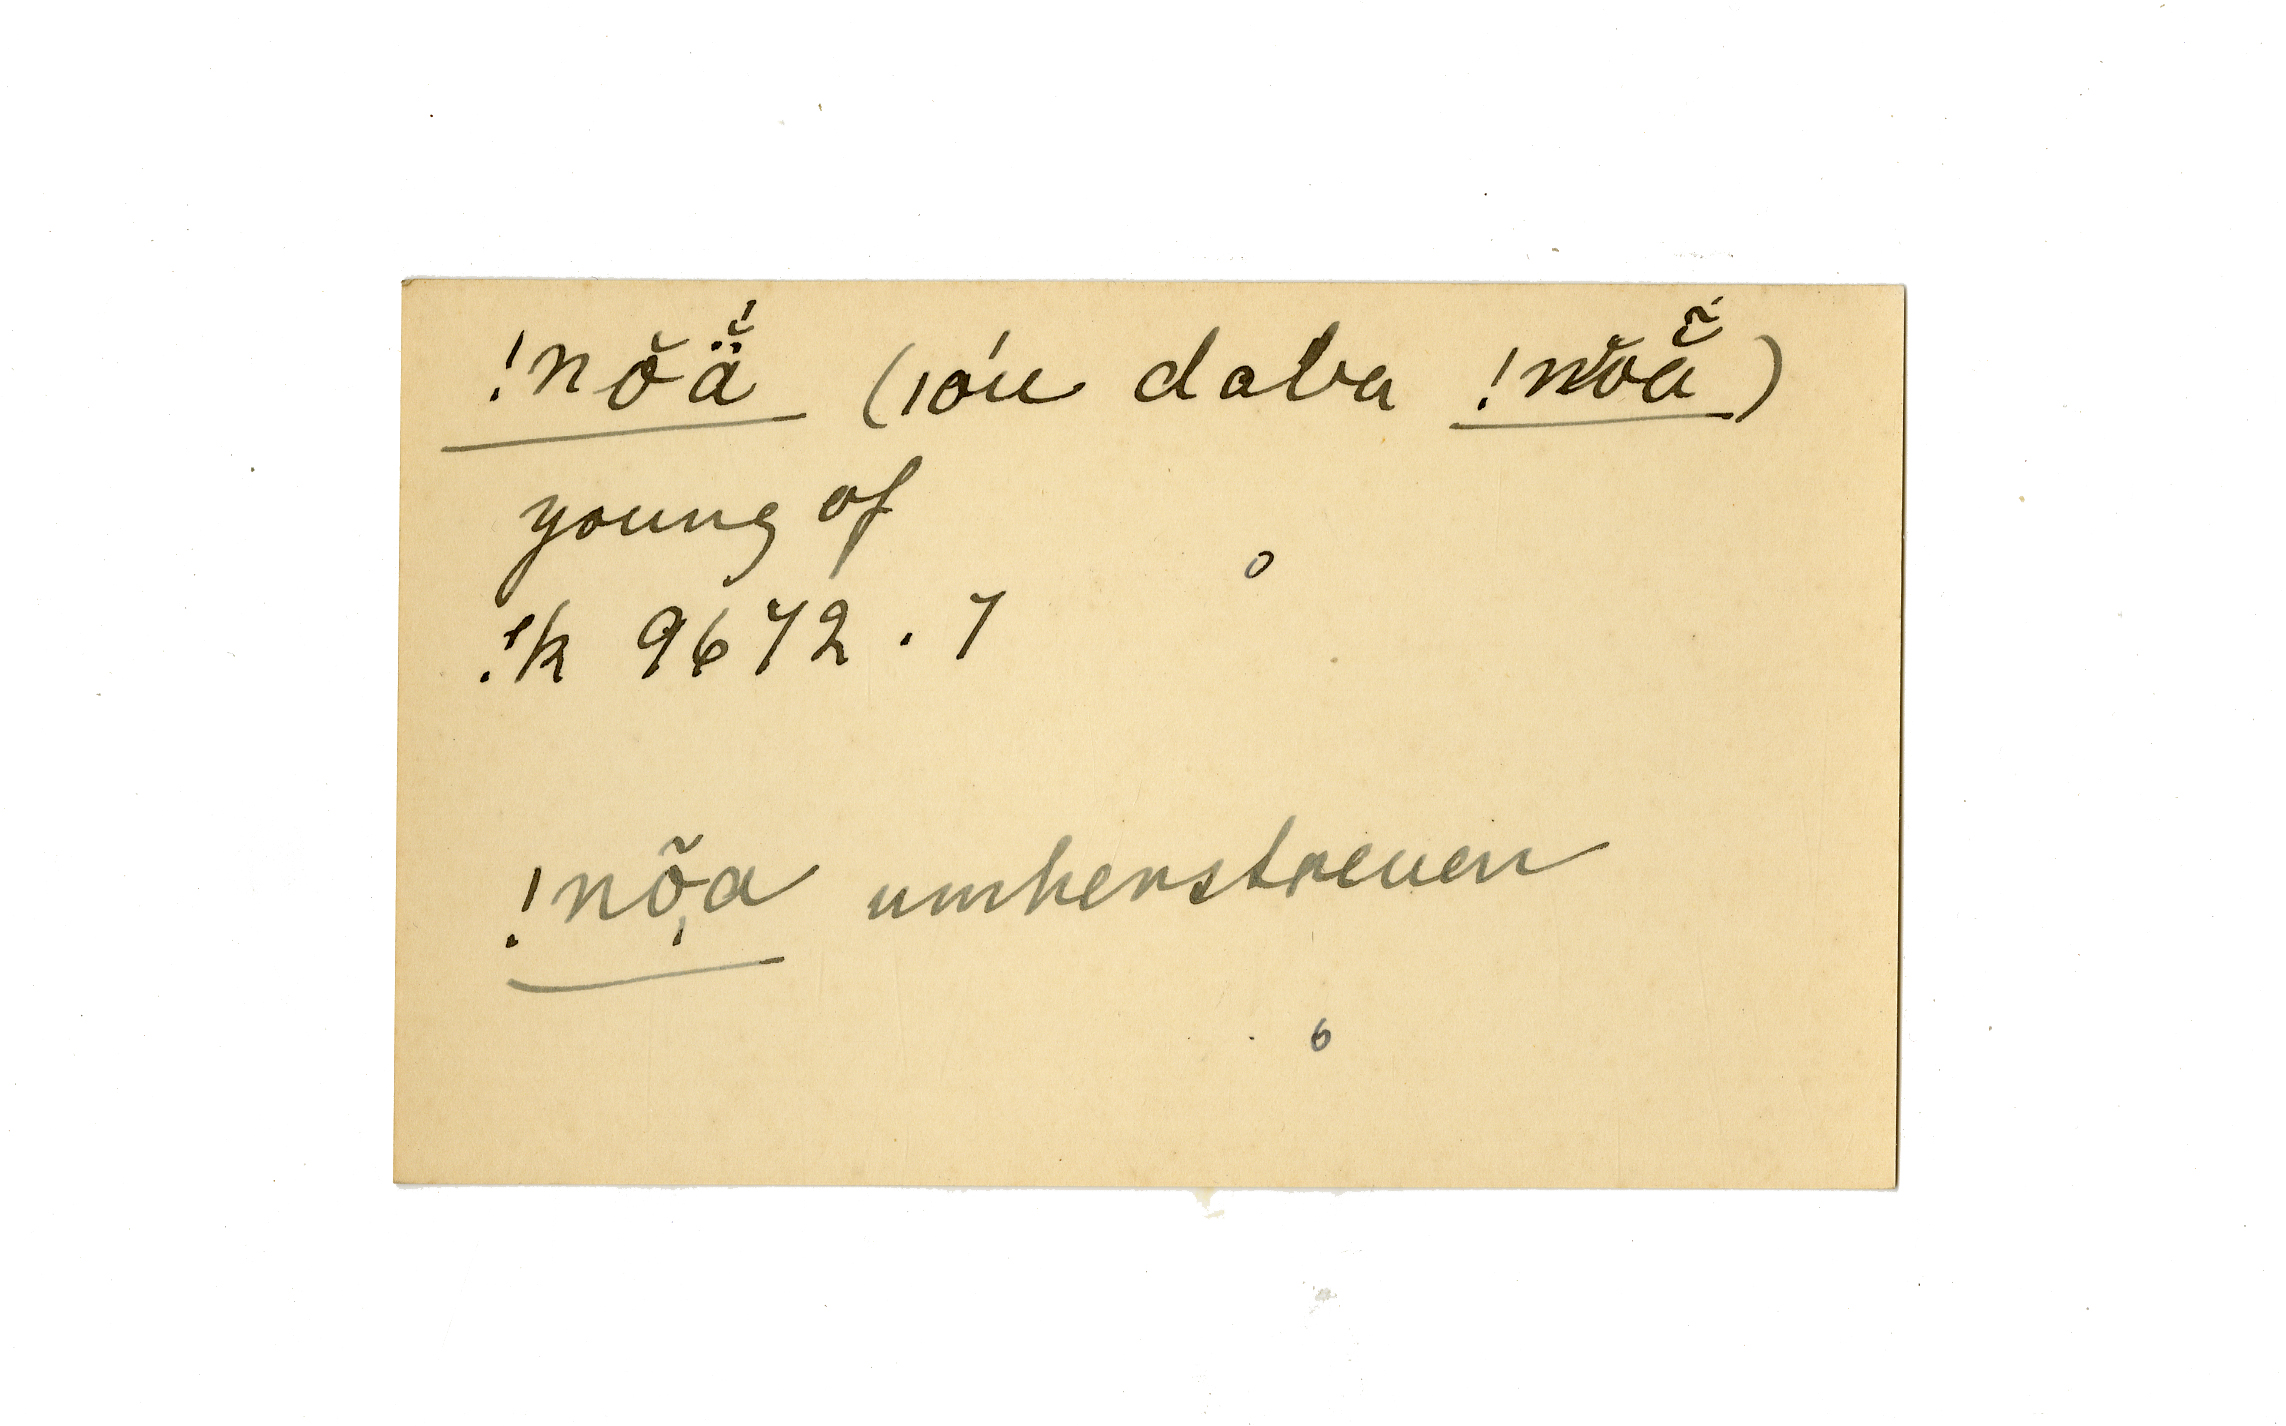 !nŏä̆́ (ıóu daba !nŏã̆)
young of
!k 9672.7
o
!nõ̦a umherstreuen
6